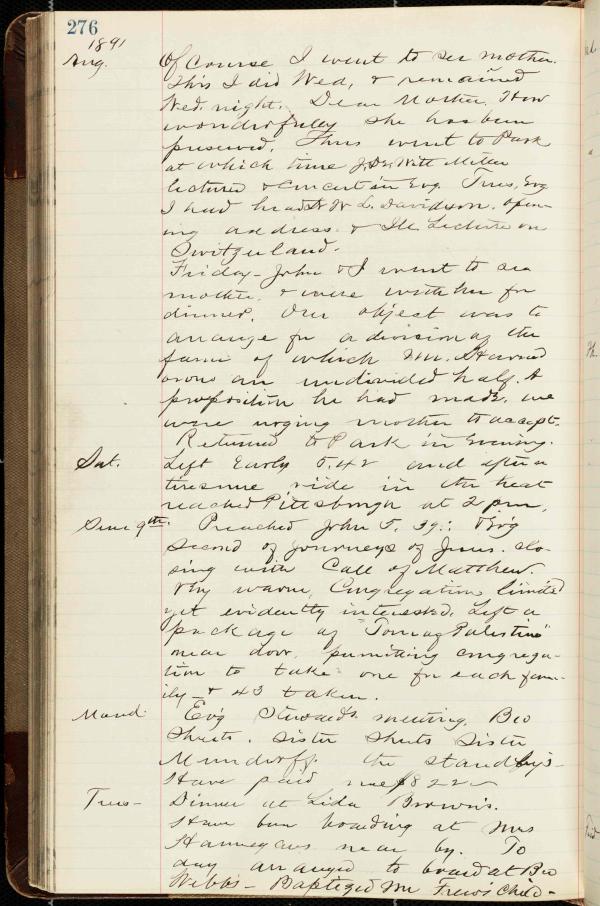 276
1891
Aug. Of course I went to see mother.
This I did Wed, & remained
Wed. night. Dear Mother, How
wonderfully she has been
preserved. Thurs went to Park
at which time J. DeWitt Miller
lectured & concert in Evg. Tues, Evg
I had heard W. L. Davidson. Open-
ing address & Ill. Lecture on
Switzerland.
Friday - John & I went to see
mother, & were with her for
dinner. Our object was to
arrange for a division of the
farm of which Mr.
owns an undivided half. A
proposition he had made, we
were urging mother to accept.
Returned to Park in Evening.
Sat. Left Early 5.42 and after a
tiresome ride in the heat
reached Pittsburgh at 2 pm.
Sun 9th. Preached John 5. 39.: Ev'g
second of journeys of Jesus. clo-
sing with Call of Matthew.
Very warm, Congregation limited
yet evidently interested. Left a
package of "Tour of Palestine"
near door, permitting congrega-
tion to take one for each fam-
ily - & 43 taken.
Mond. Ev'g Stewards meeting. Bro
Shuts. Sister Shuts Sister
Mundorff. the standby's -
Have paid me $822
Tues - Dinner at Lida Brown's.
Have been boarding at Mrs
near by. To
day arranged to board at Bro
Webb's - Baptized Mr Frew's Child -